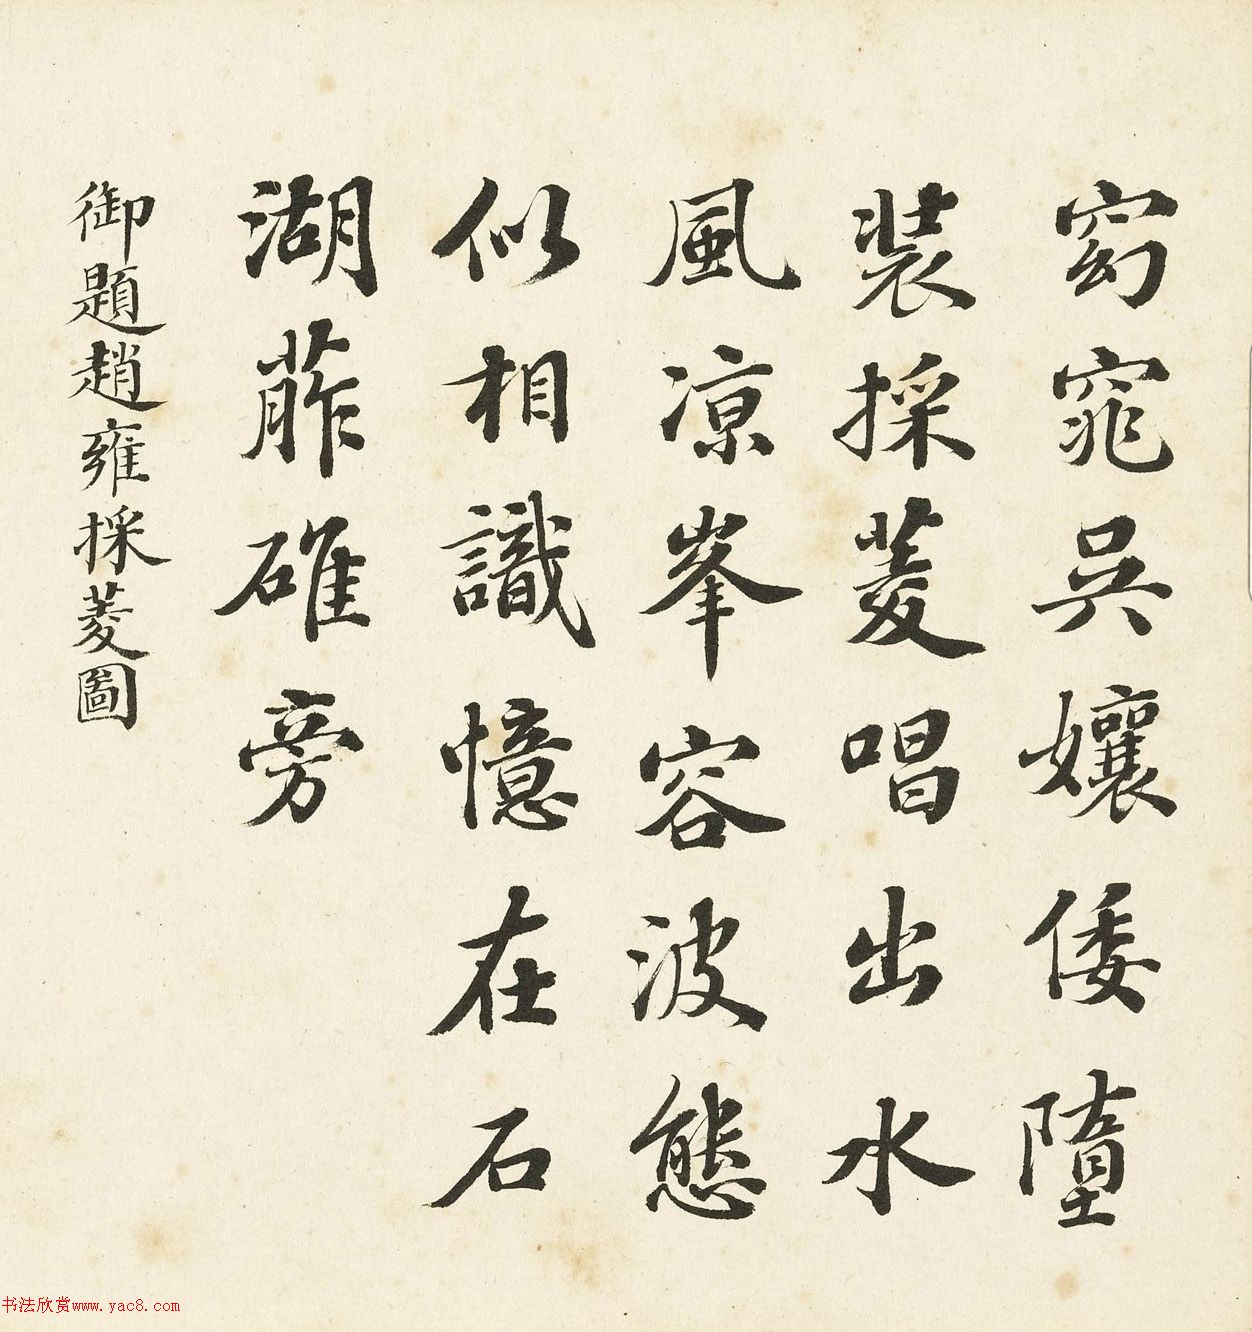 窈窕吳孃倭墮
裝採菱唱出水
風涼峯容波態
似相識憶在石
湖葄碓旁
御題趙雍採菱圖
书法欣赏www.yac8.com